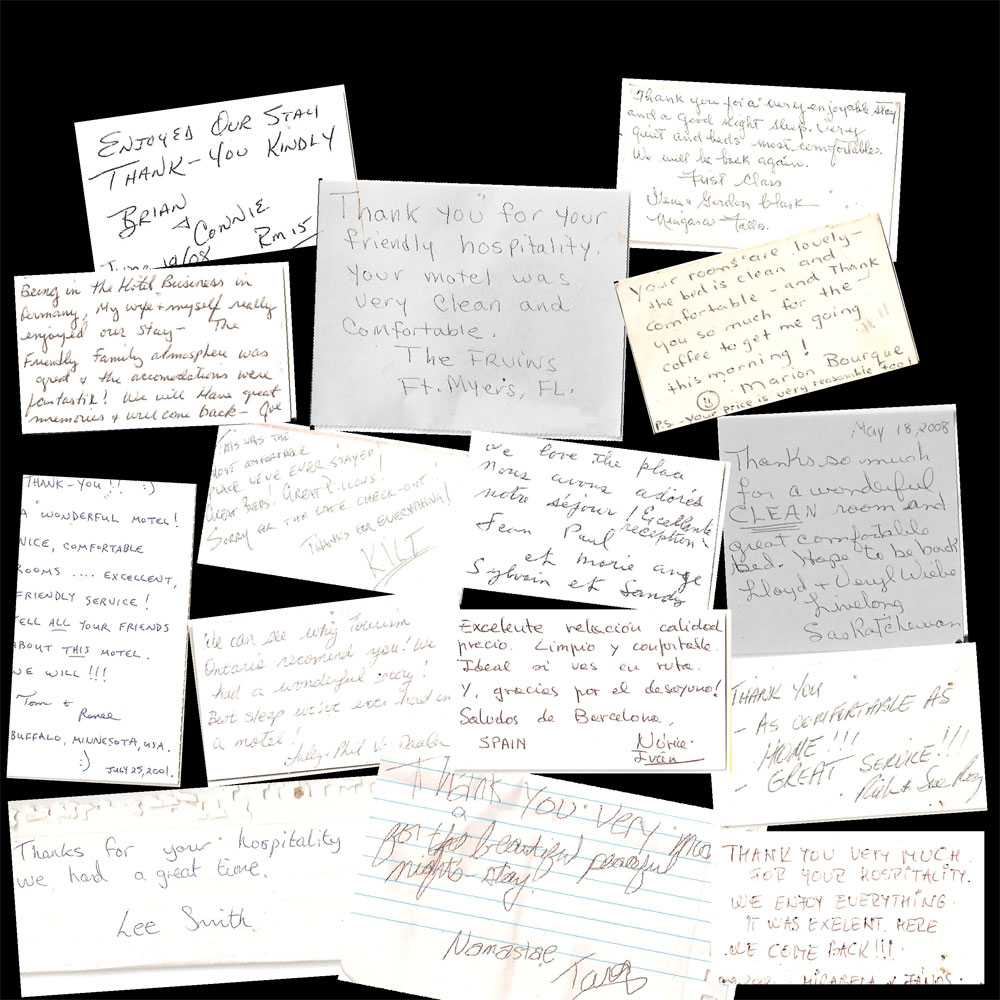 ENJOYED OUR STAY
THANK-YOU KINDLY
BRIAN
& CONNIE
Rm 15
Thank you for a very enjoyable stay
and a good night sleep. Very
quiet and beds most comfortable.
We will be back again.
First Class
Gordon Clark
Niagara Falls
Thank you for your
friendly hospitality.
Your motel was
very clean and
Comfortable.
The FRUINS
Ft. Myers, FL.
Your rooms are lovely-
the bed is clean and
comfortable - and Thank
you so much for the -
coffee to get me going
this morning!
Marion Bourque
P.S. - Your price is very reasonable too!
Being in the Hotel Business in
Germany, My wife + myself really
enjoyed our stay - The
Friendly Family atmosphere was
great & the accomodations were
fantastik! We will Have great
memories & will come back -
THIS WAS THE
MOST
PLACE WE'VE EVER STAYED!
GREAT BEDS! GREAT PILLOWS!
SORRY FOR THE LATE CHECK-OUT!
THANKS FOR EVERYTHING!
We love the place
nous avons adorés
notre séjour! Excellente
reception.
Jean Paul
et marie ange
Sylvain et Sandy
May 18, 2008
Thanks so much
for a wonderful
CLEAN room and
great comfortable
bed. Hope to be back
Lloyd + Veryl Wiebe
Livelong
Saskatchewan
THANK-YOU!! :)
A WONDERFUL MOTEL!
NICE, COMFORTABLE
ROOMS .... EXCELLENT,
FRIENDLY SERVICE!
TELL ALL YOUR FRIENDS
ABOUT THIS MOTEL.
WE WILL!!!
Tom &
Renee
BUFFALO, MINNESOTA, USA.
:) JULY 25, 2001.
We can see why Tourism
Ontario recomind you! We
had a wonderful stay!
Best sleep we've ever had in
a motel!
Excelente relación calidad
precio. Limpio y confortable.
Ideal si vas en ruta.
Y, gracias por el desayuno!
Saludos de Barcelona,
SPAIN Núria
Ivan
THANK YOU
- AS COMFORTABLE AS
HOME!!!
- GREAT SERVICE!!!
Thanks for your hospitality
we had a great time.
Lee Smith
Thank You Very
for a beautiful peaceful
nights stay.
Namastae
THANK YOU VERY MUCH
FOR YOUR HOSPITALITY.
WE ENJOY EVERYTHING.
IT WAS EXELENT HERE
WE COME BACK!!!
MICAELA & JANOS